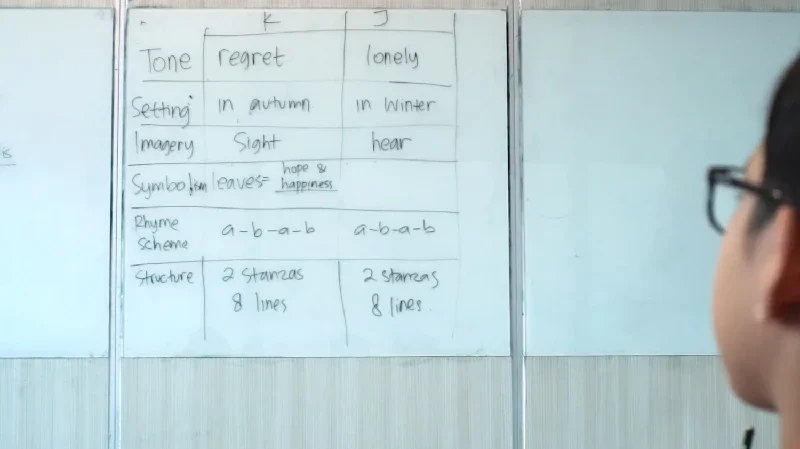 is
K J
Tone regret lonely
Setting in autumn in winter
Imagery Sight hear
Symbolism leaves= hope & happiness
Rhyme scheme a-b-a-b a-b-a-b
Structure 2 stanzas 2 stanzas
8 lines 8 lines